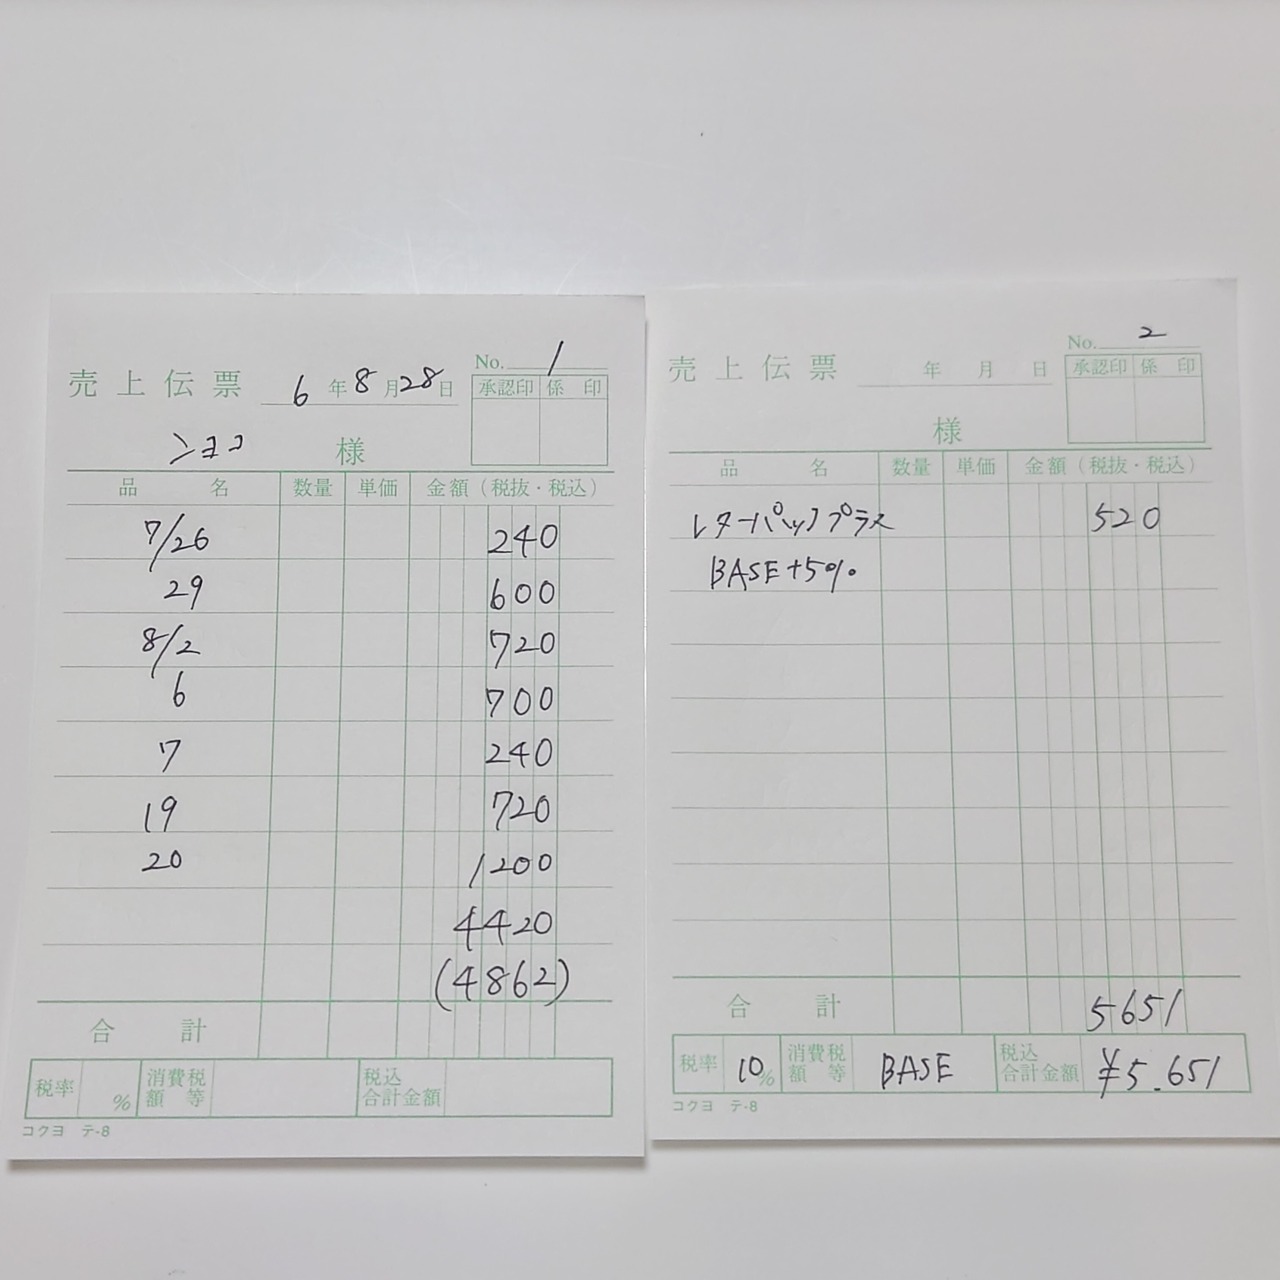 売上伝票 6年8月28日 No. 1
承認印 係 印
ショコ 様
品 名 数量 単価 金額(税抜・税込)
7/26 240
29 600
8/2 720
6 700
7 240
19 720
20 1200
4420
(4862)
合 計
税率 % 消費税額等 税込合計金額
コクヨ テ-8
売上伝票 年 月 日 No. 2
承認印 係 印
様
品 名 数量 単価 金額(税抜・税込)
レターパックプラス 520
BASE+5%
合 計 5651
税率 10% 消費税額等 BASE 税込合計金額 ¥5.651
コクヨ テ-8